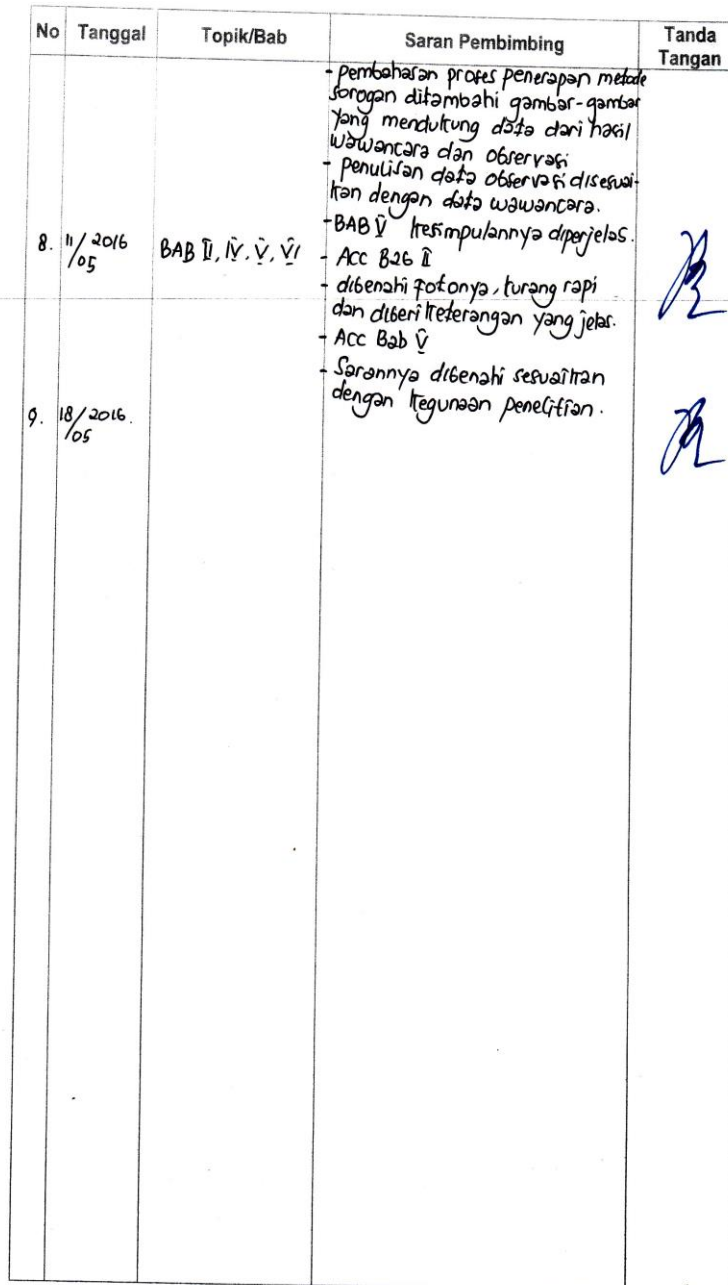 No Tanggal Topik/Bab Saran Pembimbing Tanda Tangan
- pembahasan proses penerapan metode
sorogan ditambahi gambar-gambar
yang mendukung data dari hasil
wawancara dan observasi
- penulisan data observasi disesuai-
kan dengan data wawancara.
- BAB V kesimpulannya diperjelas.
8. 11/05 2016 BAB II, IV, V, VI
- Acc Bab II
- dibenahi fotonya, kurang rapi
dan diberi keterangan yang jelas.
- Acc Bab V
- Sarannya dibenahi sesuaikan
dengan kegunaan penelitian.
9. 18/05 2016.